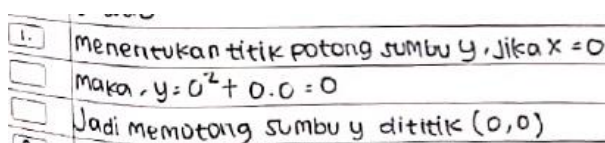 1. Menentukan titik potong sumbu y, jika x = 0
Maka, y = 0² + 0.0 = 0
Jadi memotong sumbu y dititik (0,0)